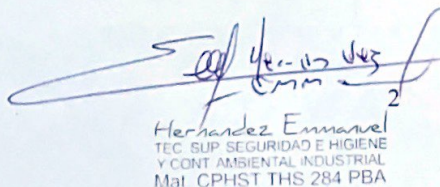 Hernandez
Emm
2
Hernandez Emmanuel
TEC SUP SEGURIDAD E HIGIENE
Y CONT AMBIENTAL INDUSTRIAL
Mat. CPHST THS 284 PBA